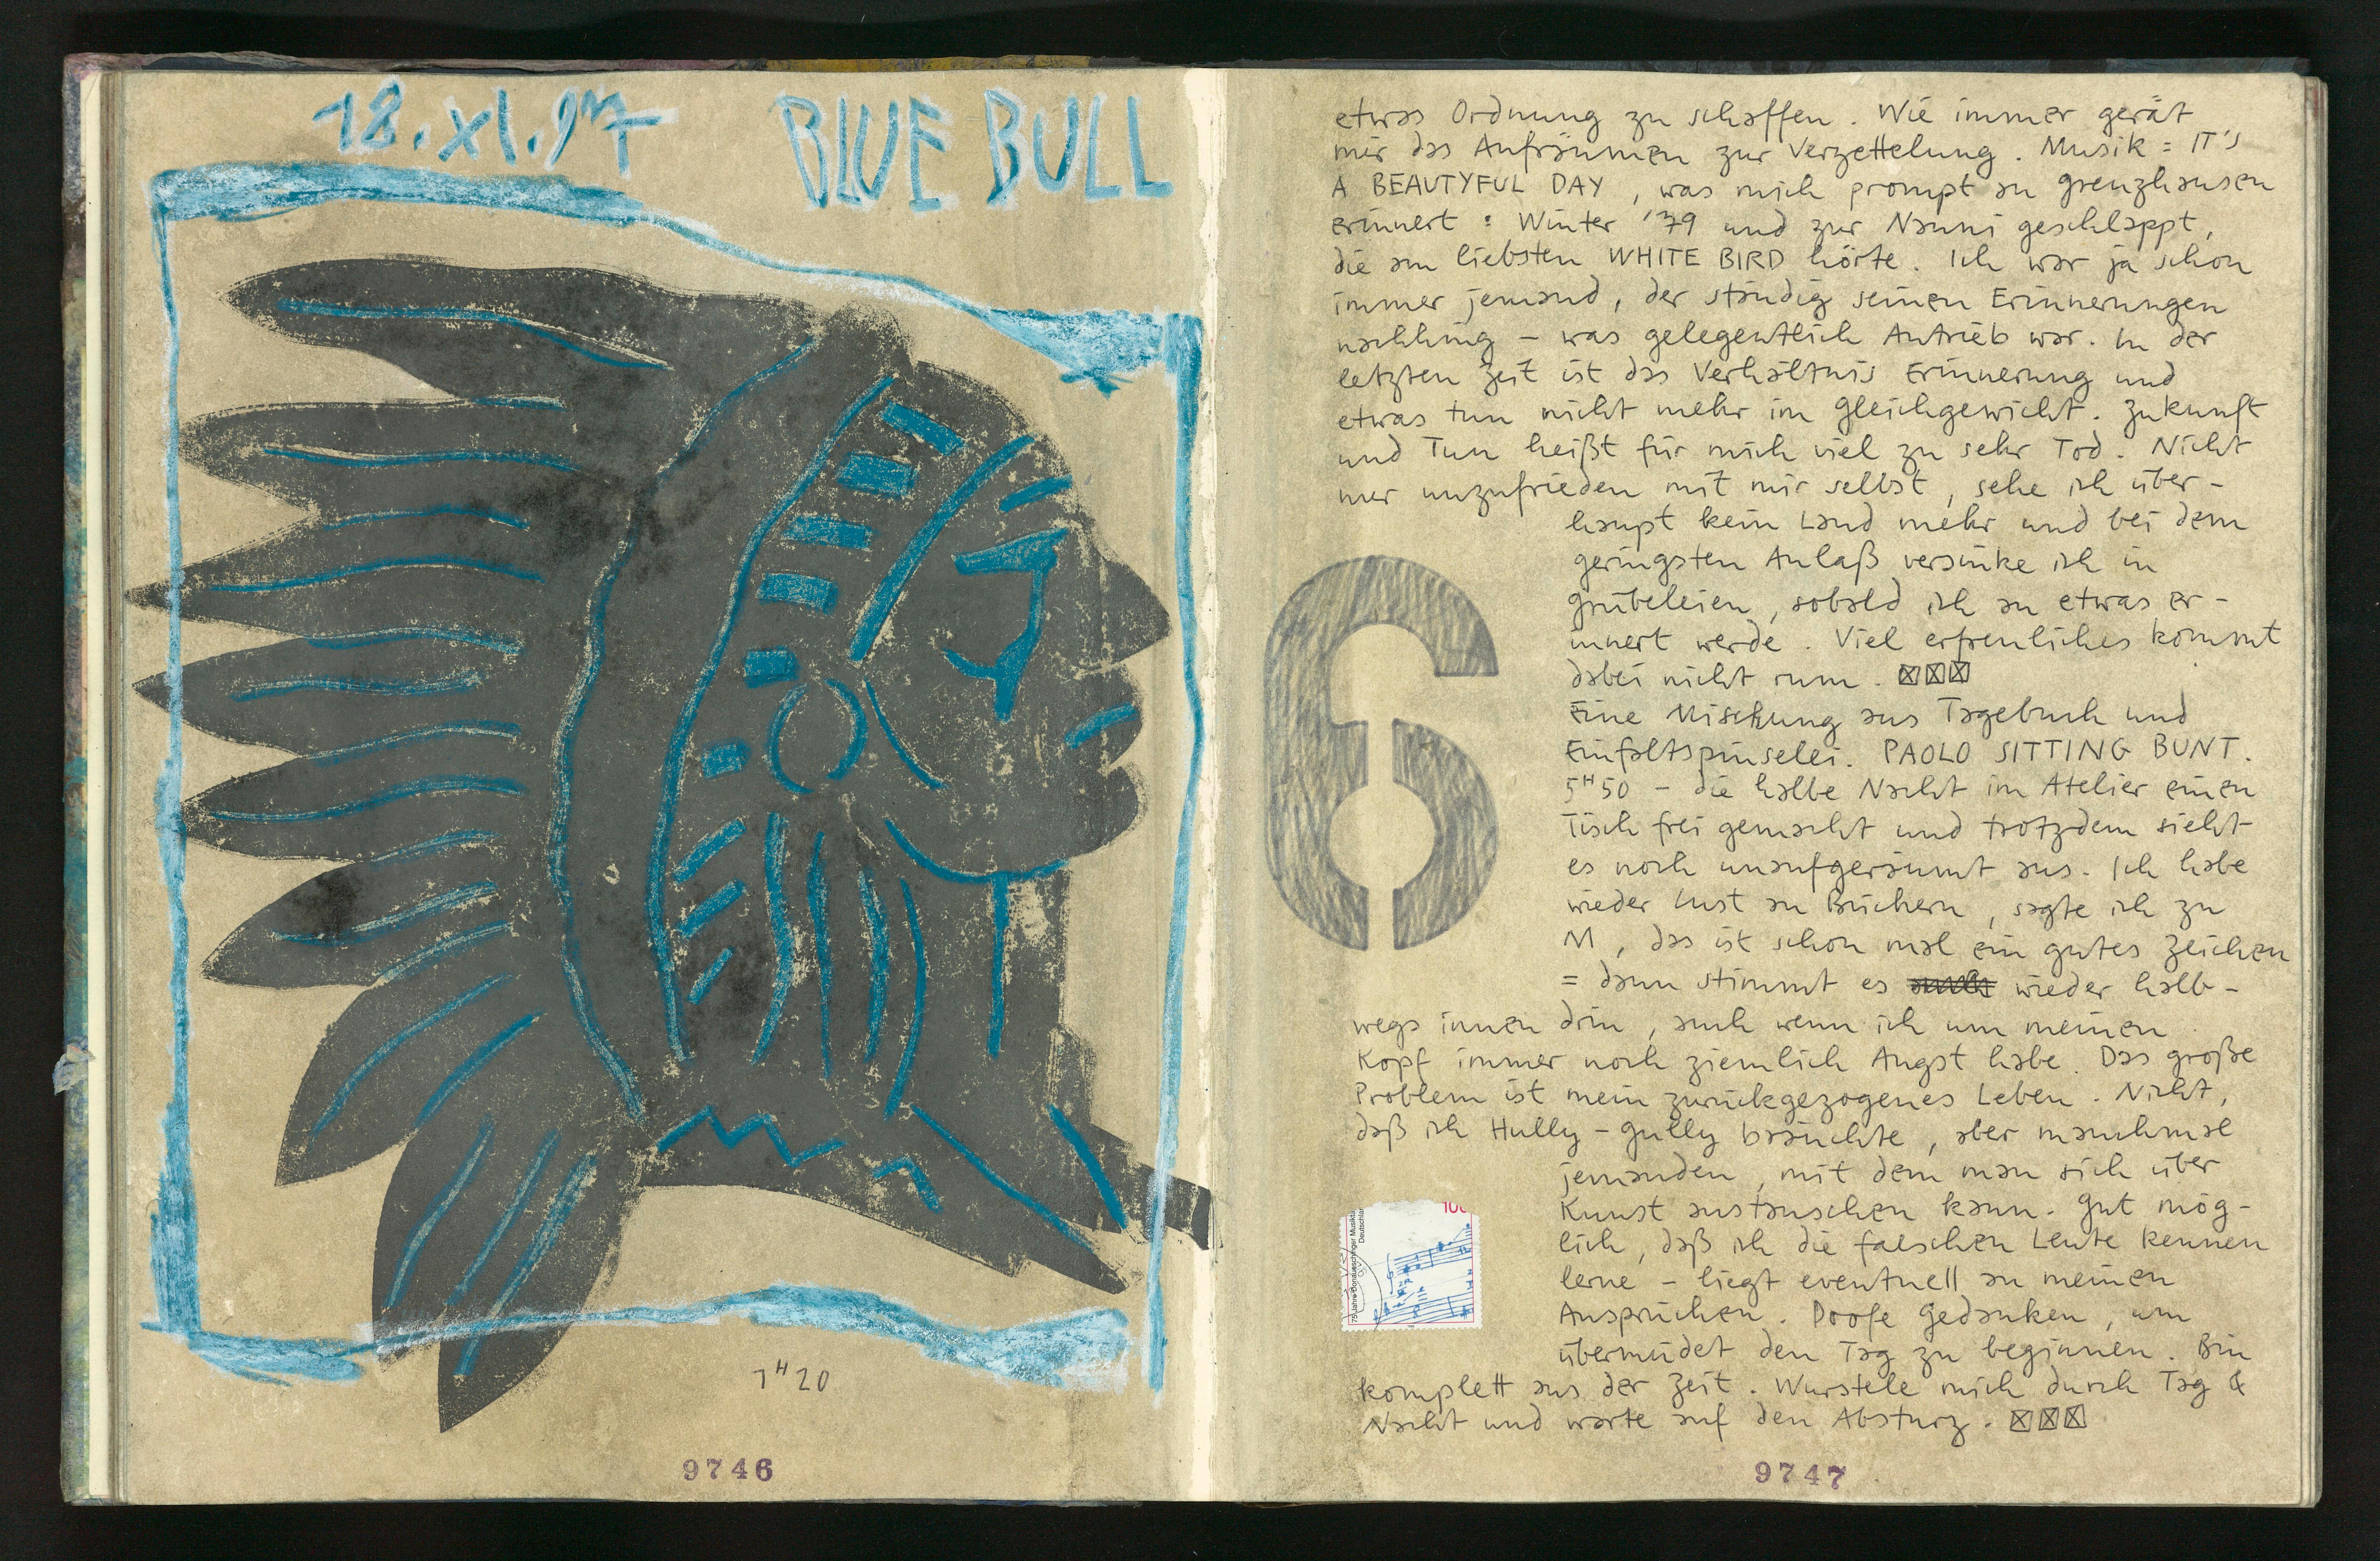 18.XI.97 BLUE BULL
7H20
9746
etwas Ordnung zu schaffen. Wie immer gerät
mir das Aufräumen zur Verzettelung. Musik = IT'S
A BEAUTYFUL DAY, was mich prompt an Grenzhausen
erinnert: Winter '79 und zur Nanni geschlappt,
die am liebsten WHITE BIRD hörte. Ich war ja schon
immer jemand, der ständig seinen Erinnerungen
nachhing – was gelegentlich Antrieb war. In der
letzten Zeit ist das Verhältnis Erinnerung und
etwas tun nicht mehr im Gleichgewicht. Zukunft
und Tun heißt für mich viel zu sehr Tod. Nicht
nur unzufrieden mit mir selbst, sehe ich über-
haupt kein Land mehr und bei dem
geringsten Anlaß versinke ich in
Grübeleien, sobald ich an etwas er-
innert werde. Viel erfreuliches kommt
dabei nicht rum. ☒☒☒
Eine Mischung aus Tagebuch und
Einfaltspinselei. PAOLO SITTING BUNT.
5H50 – die halbe Nacht im Atelier einen
Tisch frei gemacht und trotzdem sieht
es noch unaufgeräumt aus. Ich habe
wieder Lust an Büchern, sagte ich zu
M, das ist schon mal ein gutes Zeichen
= dann stimmt es wieder halb-
wegs innen drin, auch wenn ich um meinen
Kopf immer noch ziemlich Angst habe. Das große
Problem ist mein zurückgezogenes Leben. Nicht,
daß ich Hully-Gully bräuchte, aber manchmal
jemanden, mit dem man sich über
Kunst austauschen kann. Gut mög-
lich, daß ich die falschen Leute kennen
lerne – liegt eventuell an meinen
Ansprüchen. Doofe Gedanken, um
übermüdet den Tag zu beginnen. Bin
komplett aus der Zeit. Wurstele mich durch Tag &
Nacht und warte auf den Absturz. ☒☒☒
6
100
75 Jahre Donaueschinger Musiktage
Deutschland
9747